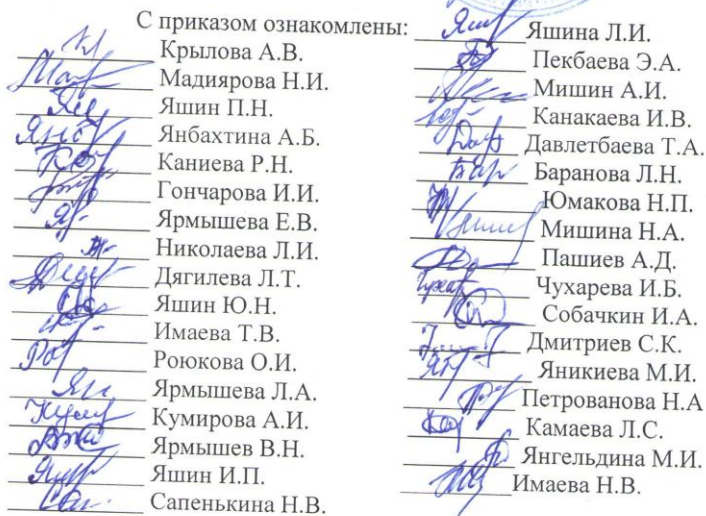 С приказом ознакомлены:
Крылова А.В.
Мадиярова Н.И.
Яшин П.Н.
Янбахтина А.Б.
Каниева Р.Н.
Гончарова И.И.
Ярмышева Е.В.
Николаева Л.И.
Дягилева Л.Т.
Яшин Ю.Н.
Имаева Т.В.
Роюкова О.И.
Ярмышева Л.А.
Кумирова А.И.
Ярмышев В.Н.
Яшин И.П.
Сапенькина Н.В.
Яшина Л.И.
Пекбаева Э.А.
Мишин А.И.
Канакаева И.В.
Давлетбаева Т.А.
Баранова Л.Н.
Юмакова Н.П.
Мишина Н.А.
Пашиев А.Д.
Чухарева И.Б.
Собачкин И.А.
Дмитриев С.К.
Яникиева М.И.
Петрованова Н.А
Камаева Л.С.
Янгельдина М.И.
Имаева Н.В.